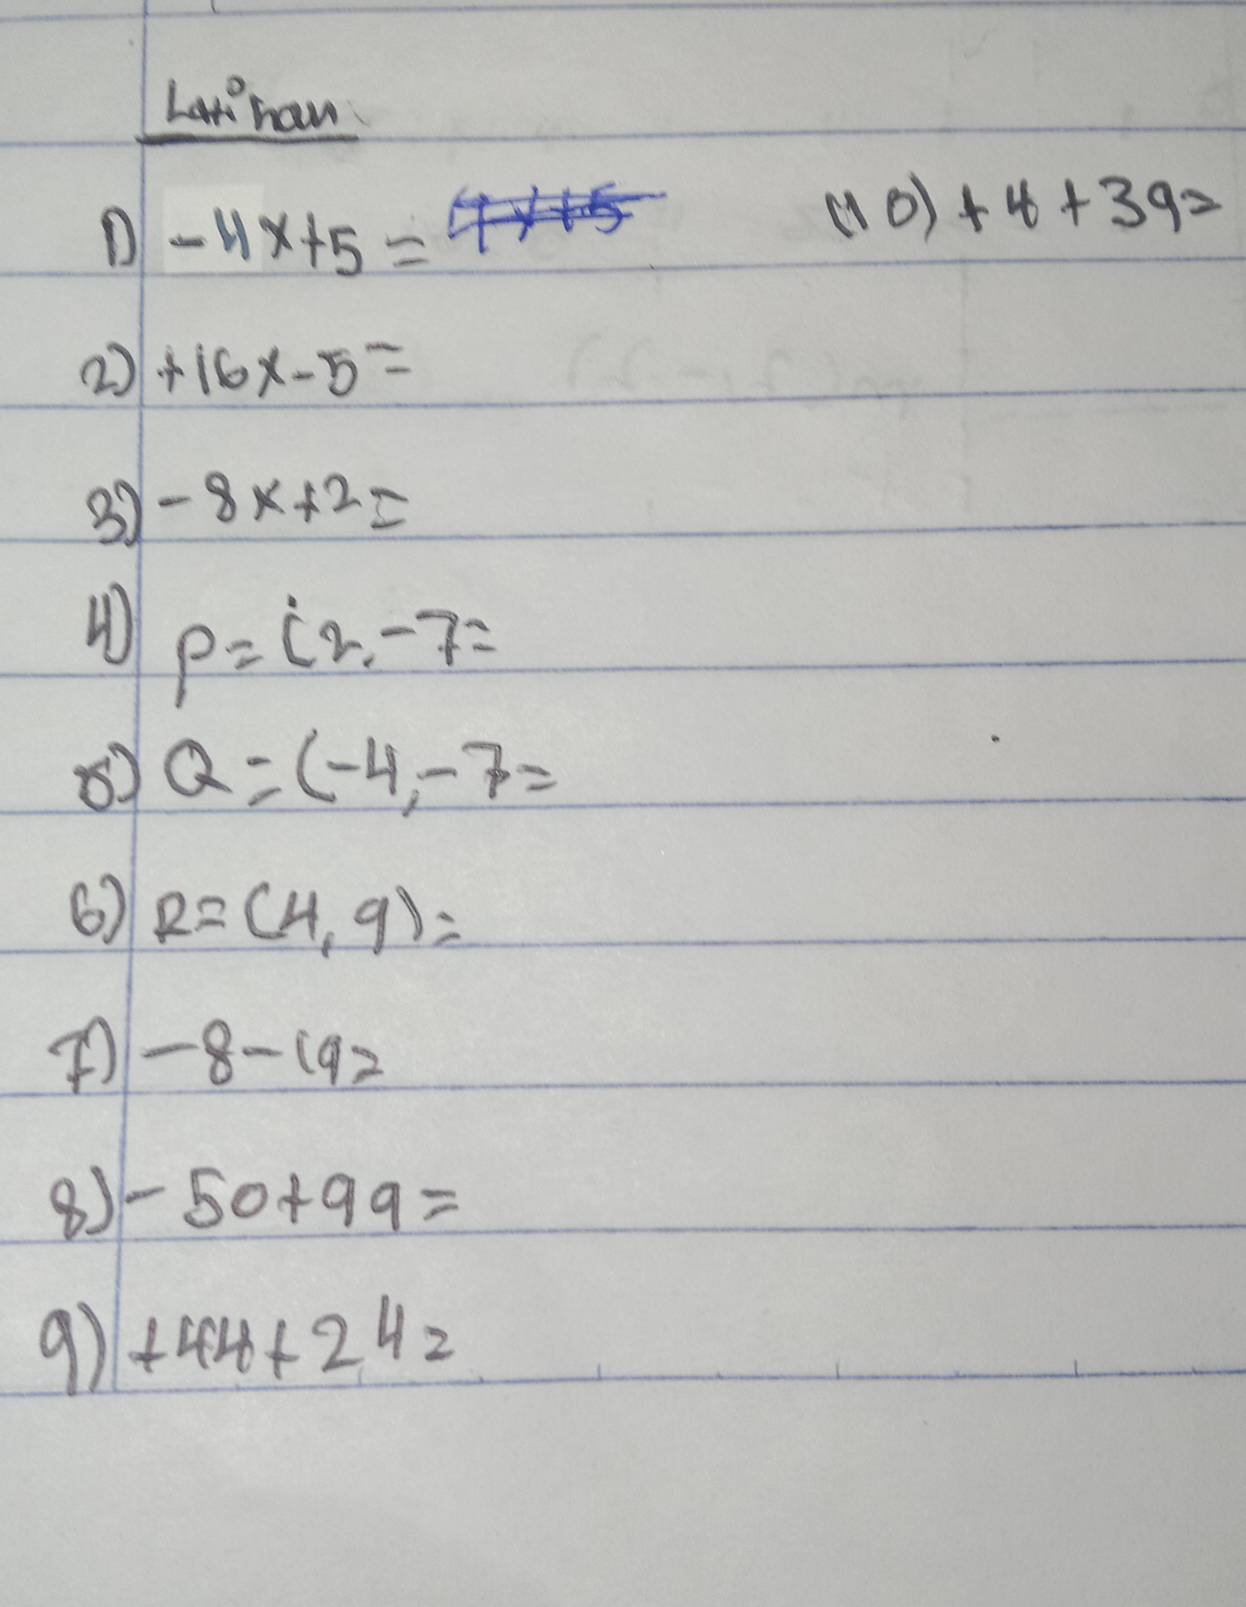 Latihan
1) -4x+5=
(10) +4+39=
2) +16x-5=
3) -8x+2=
4) P=(2,-7=
5) Q=(-4,-7=
6) R=(4,9)=
7) -8-(9=
8) -50+99=
9) +44+24=